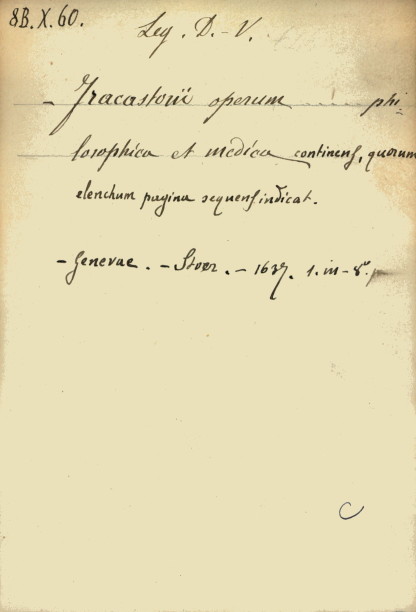 8B.X.60.
Leg. D.-V.
- Fracastorii operum phi-
losophica et medica continens, quorum
elenchum pagina sequens indicat.
- Genevae. - Stoer. - 1637. 1. in-8°.
C